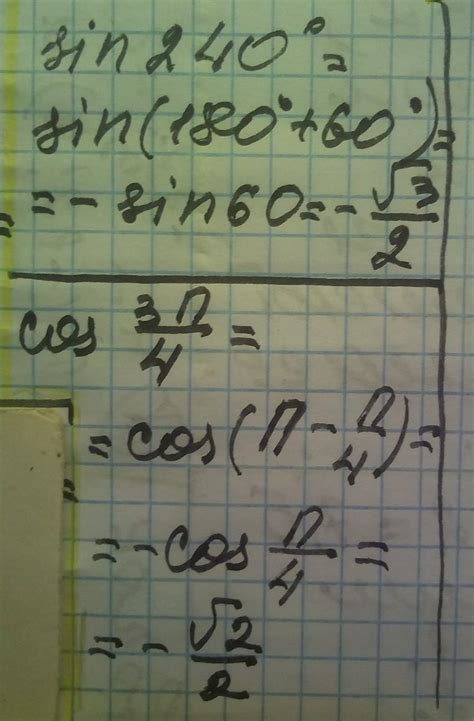 sin 240° =
sin(180° + 60°) =
= - sin 60 = - √3/2
cos 3π/4 =
= cos(π - π/4) =
= - cos π/4 =
= - √2/2